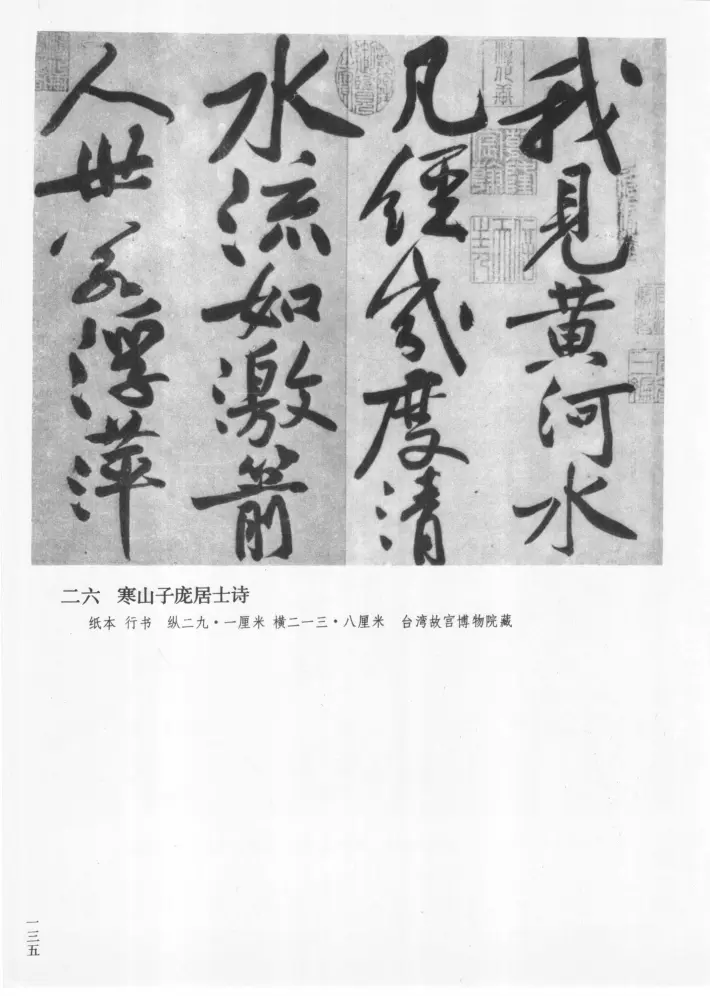 我見黄河水
凡經幾度清
水流如激箭
人世若浮萍
淳化軒
乾隆宸翰
信天主人
二六 寒山子庞居士诗
纸本 行书 纵二九·一厘米 横二一三·八厘米 台湾故宫博物院藏
一三五